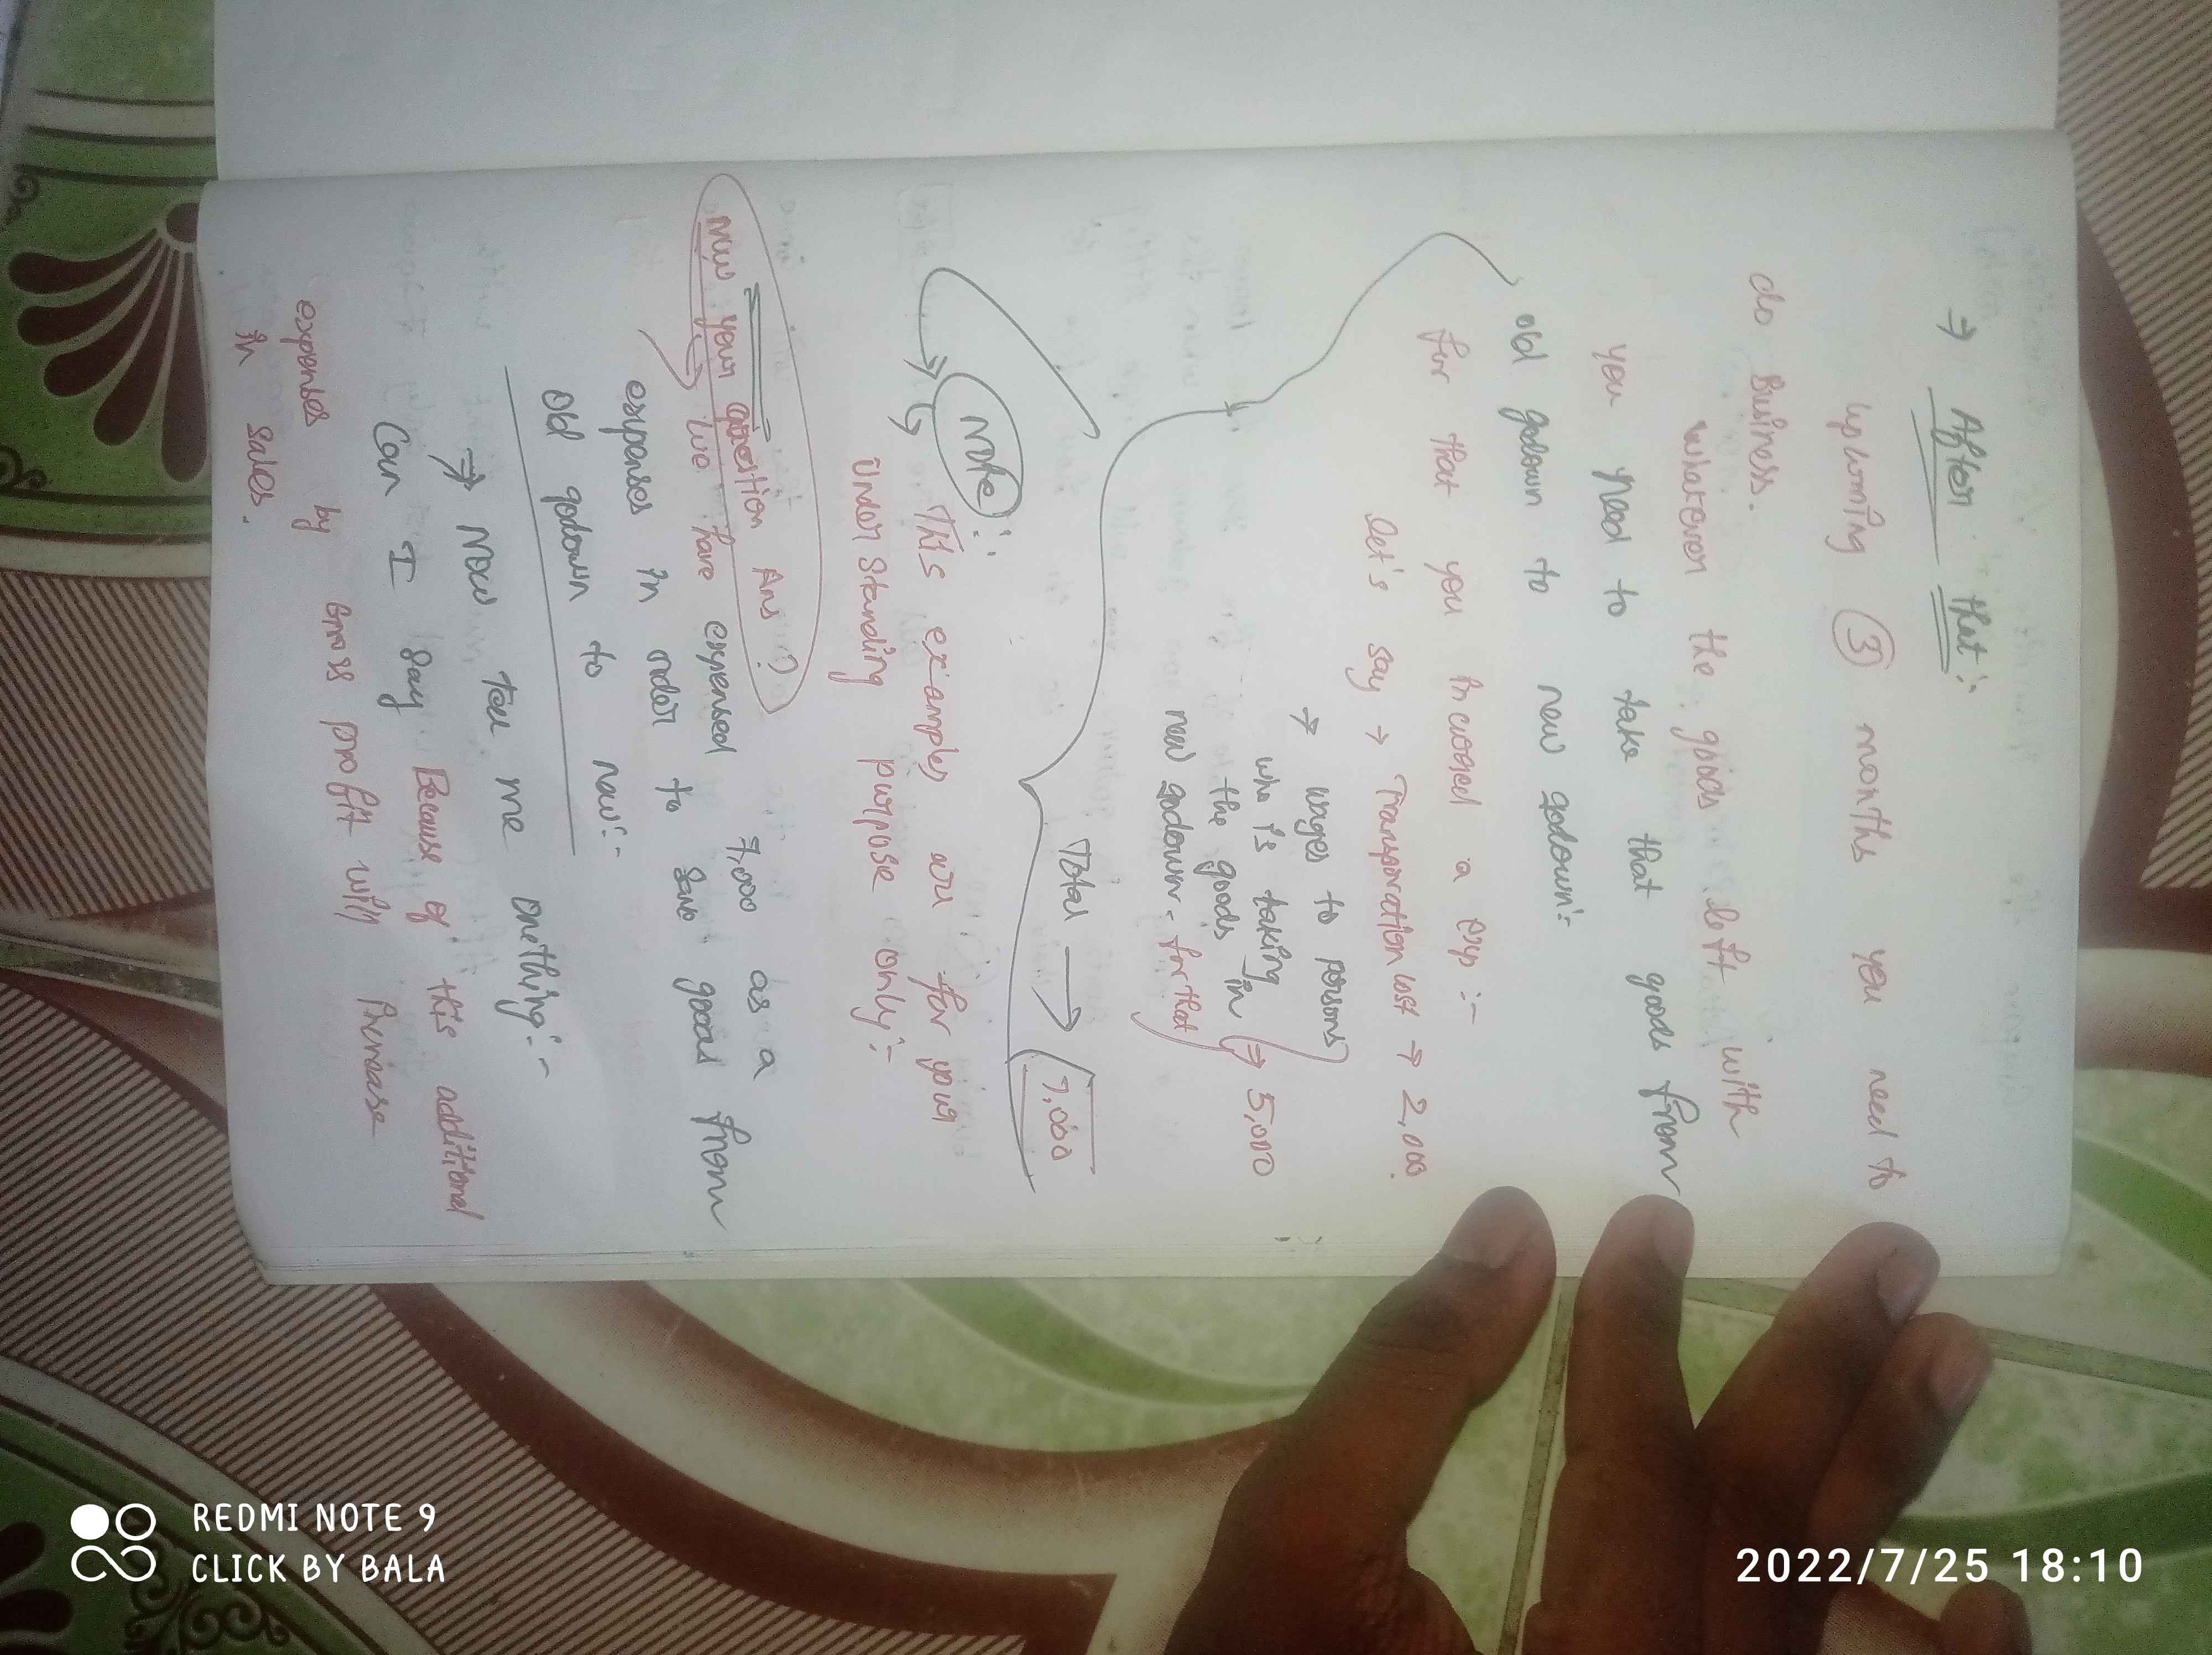 → After that :-
upcoming ③ months you need to
do Business.
whatever the goods left with
you need to take that goods from
old godown to new godown:-
for that you incurred a exp :-
let's say → Transporation cost → 2,000.
→ wages to persons
who is taking
the goods in ⇒ 5,000
new godown. for that
Total → 7,000
Note :-
This examples are for your
Understanding purpose only:-
Now your question Ans ?
→ We have expensed 7,000 as a
expenses in order to save goods from
old godown to new:-
→ Now tell me onething:-
Can I say Because of this additional
expenses by Gross profit will increase
in sales.
REDMI NOTE 9
CLICK BY BALA
2022/7/25 18:10